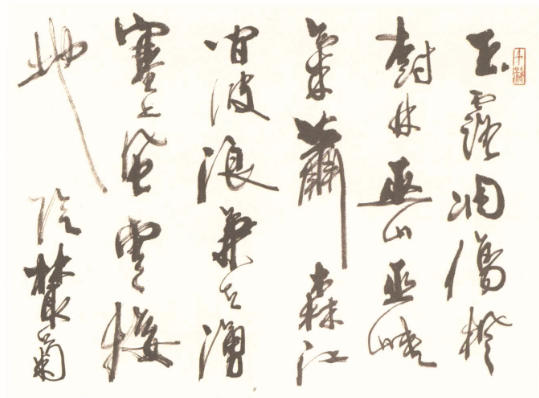 玉露凋傷楓
樹林巫山巫峽
氣蕭森江
間波浪兼天湧
塞上風雲接
地陰叢菊